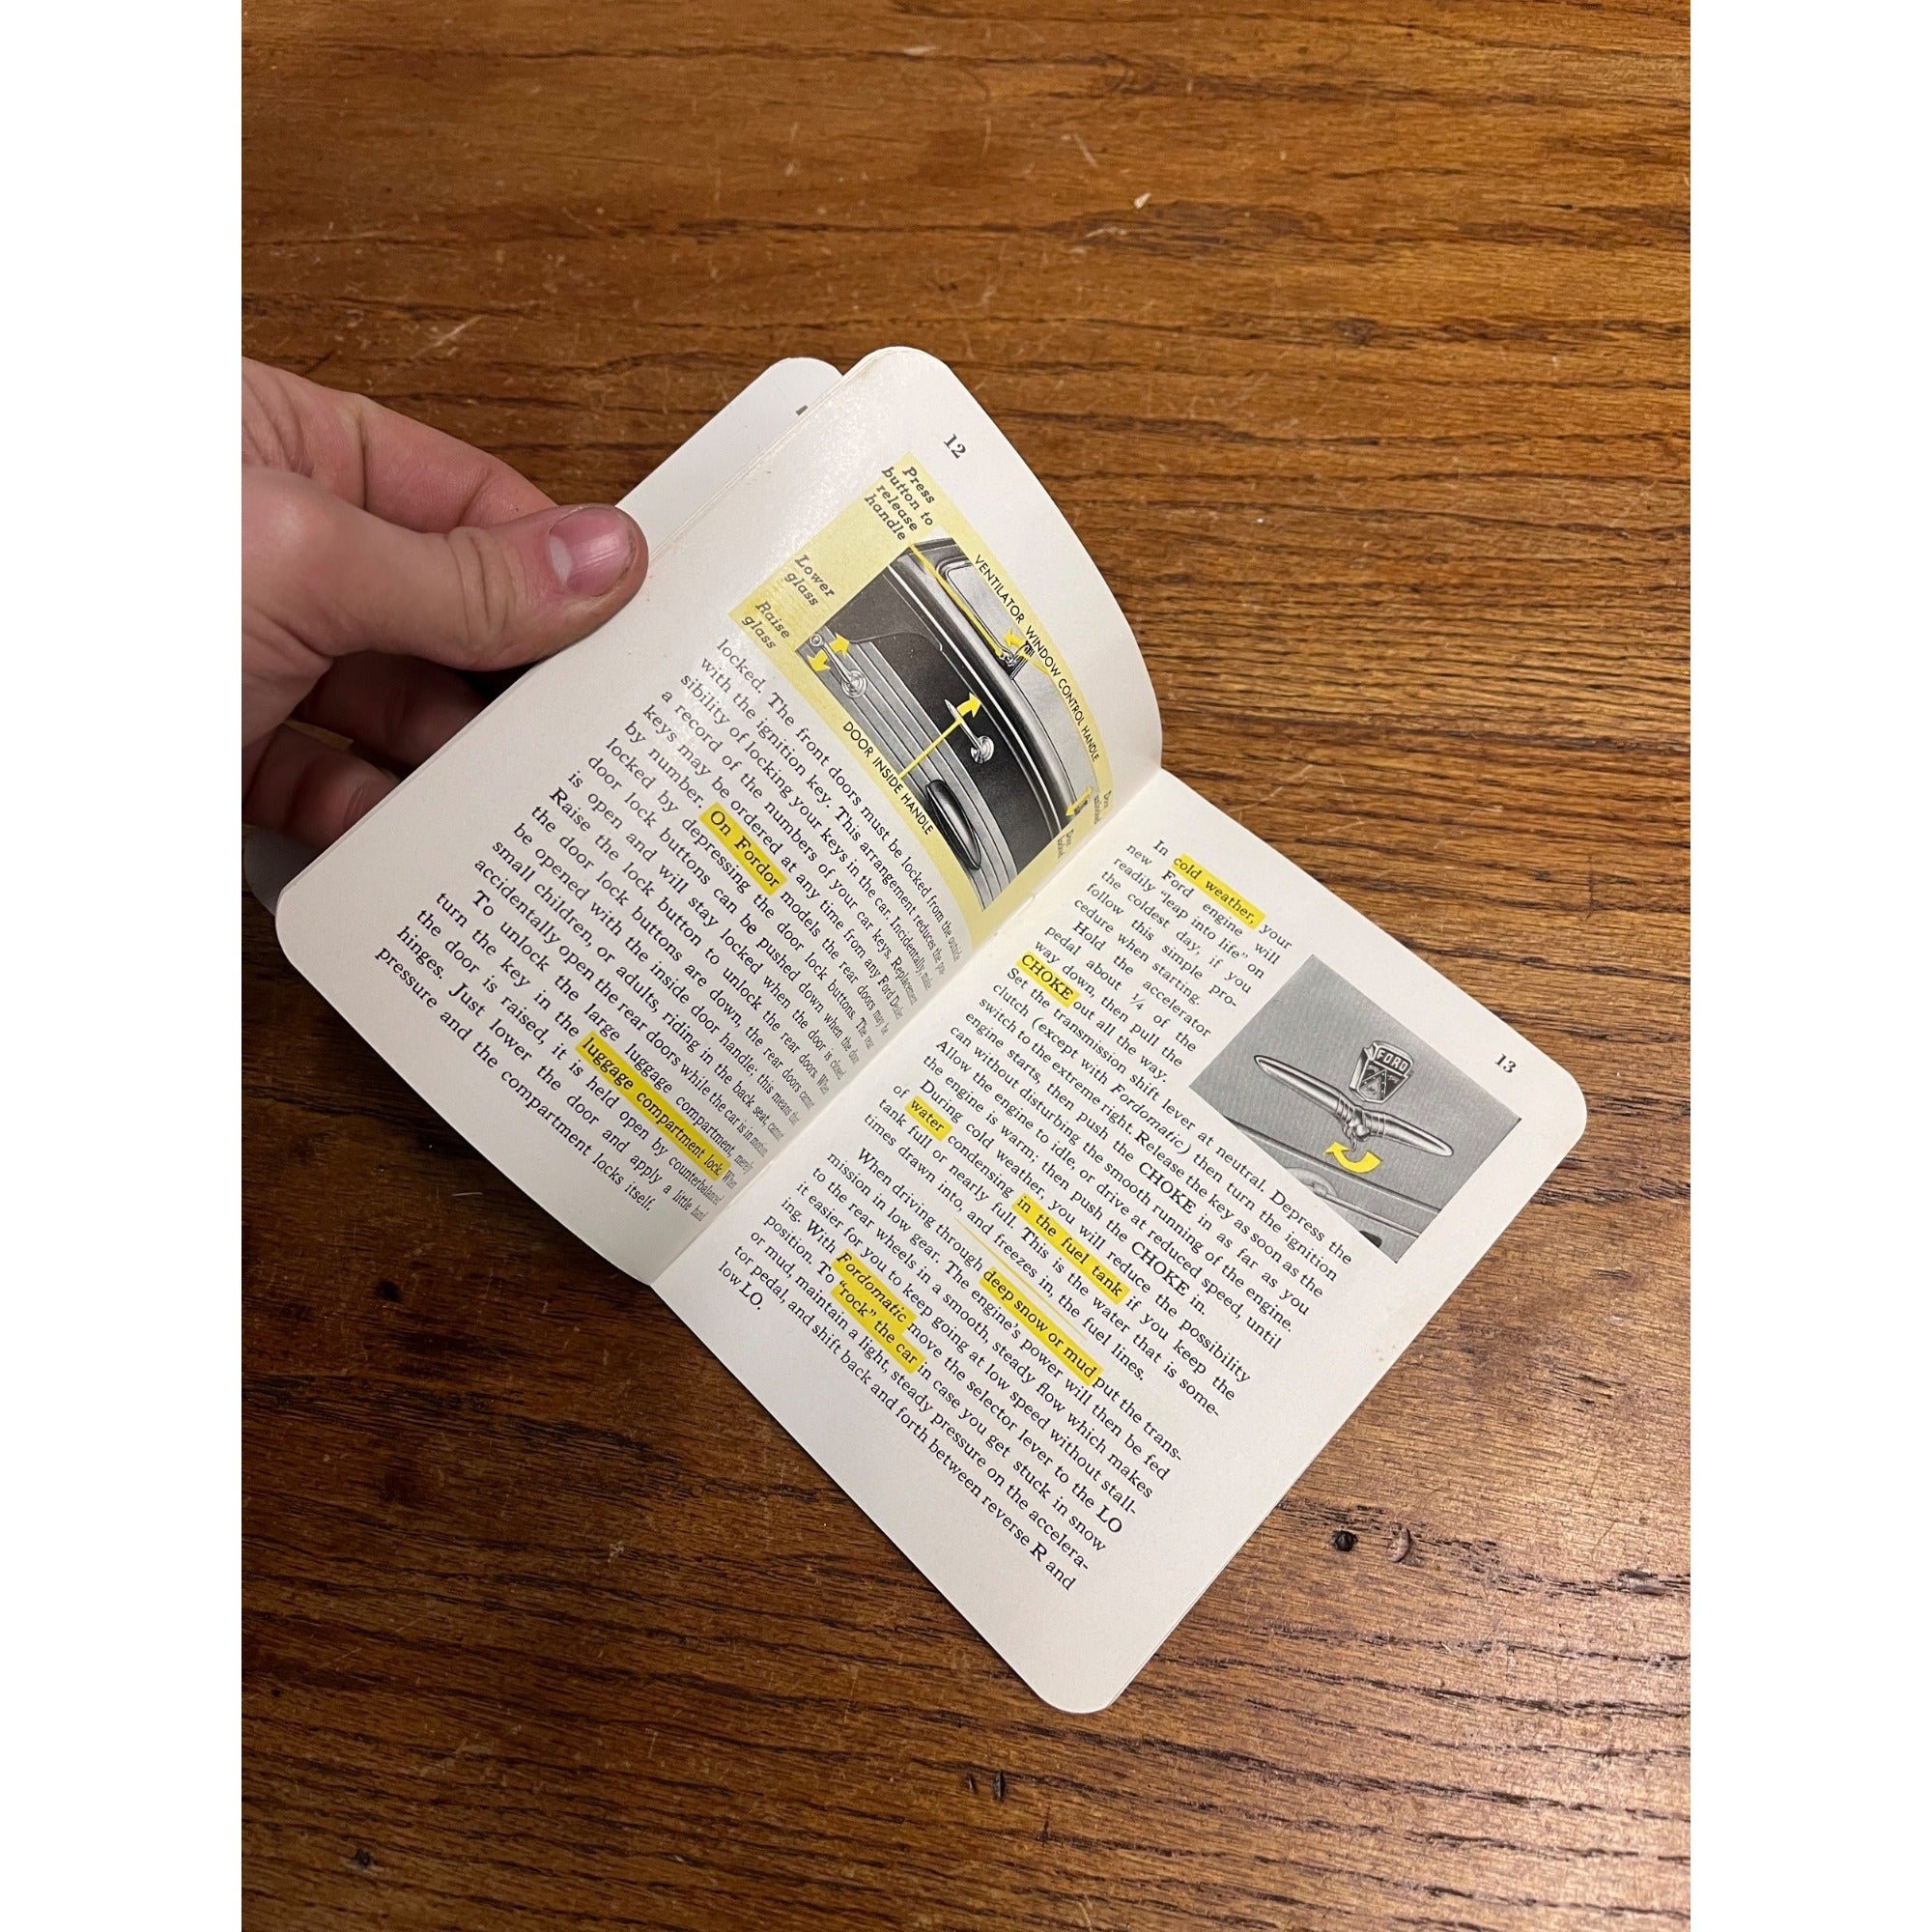 12
Press
button to
release
handle
VENTILATOR WINDOW CONTROL HANDLE
Lower
glass
Raise
glass
DOOR INSIDE HANDLE
locked. The front doors must be locked from the outside
with the ignition key. This arrangement reduces the pos-
sibility of locking your keys in the car. Incidentally, make
a record of the numbers of your car keys. Replacement
keys may be ordered at any time from any Ford Dealer
by number. On Fordor models the rear doors may be
locked by depressing the door lock buttons. The rear
door lock buttons can be pushed down when the door
is open and will stay locked when the door is closed.
Raise the lock button to unlock the rear doors. When
the door lock buttons are down, the rear doors cannot
be opened with the inside door handle; this means that
small children, or adults, riding in the back seat, cannot
accidentally open the rear doors while the car is in motion.
To unlock the large luggage compartment, merely
turn the key in the luggage compartment lock. When
the door is raised, it is held open by counterbalanced
hinges. Just lower the door and apply a little hand
pressure and the compartment locks itself.
13
In cold weather, your
new Ford engine will
readily "leap into life" on
the coldest day, if you
follow this simple pro-
cedure when starting.
Hold the accelerator
pedal about ¼ of the
way down, then pull the
CHOKE out all the way.
Set the transmission shift lever at neutral. Depress the
clutch (except with Fordomatic) then turn the ignition
switch to the extreme right. Release the key as soon as the
engine starts, then push the CHOKE in as far as you
can without disturbing the smooth running of the engine.
Allow the engine to idle, or drive at reduced speed, until
the engine is warm; then push the CHOKE in.
During cold weather, you will reduce the possibility
of water condensing in the fuel tank if you keep the
tank full or nearly full. This is the water that is some-
times drawn into, and freezes in, the fuel lines.
When driving through deep snow or mud put the trans-
mission in low gear. The engine's power will then be fed
to the rear wheels in a smooth, steady flow which makes
it easier for you to keep going at low speed without stall-
ing. With Fordomatic move the selector lever to the LO
position. To "rock" the car in case you get stuck in snow
or mud, maintain a light, steady pressure on the accelera-
tor pedal, and shift back and forth between reverse R and
low LO.
FORD